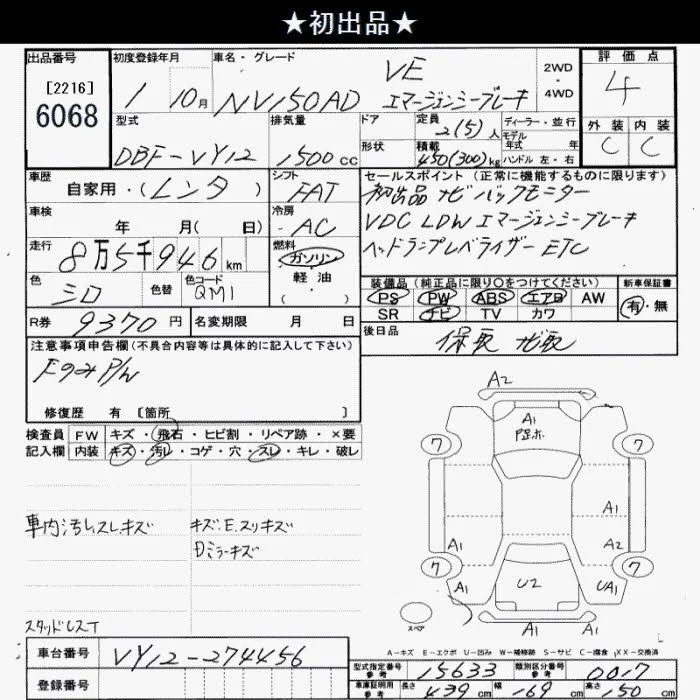 ★初出品★
出品番号
[2216]
6068
初度登録年月
1 10月
車名・グレード
NV150AD
VE
エマージェンシーブレーキ
2WD
・
4WD
評価点
4
外装 内装
C C
型式
DBF-VY12
排気量
1500cc
ドア
形状
定員
2(5)人
積載
450(300)kg
ディーラー・並行
モデル
年式 年
ハンドル 左・右
車歴
自家用・(レンタ)
シフト
FAT
車検
年 月(日)
冷房
AC
走行
8万5千946km
燃料
ガソリン
・
軽油
色
シロ
色替
色コード
QM1
R券 9370円
名変期限 月 日
セールスポイント(正常に機能するものに限ります)
初出品 ナビ バックモニター
VDC LDW エマージェンシーブレーキ
ヘッドランプレベライザー ETC
装備品(純正品に限り○をつけてください)
PS PW ABS エアB AW
SR ナビ TV カワ
新車保証書
有・無
後日品
保取 ナビ取
注意事項申告欄(不具合内容等は具体的に記入して下さい)
FのみP/W
修復歴 有 [箇所 ]
検査員
記入欄
FW キズ・飛石・ヒビ割・リペア跡・×要
内装 キズ・汚レ・コゲ・穴・スレ・キレ・破レ
車内汚レスレキズ
キズ・E.スリキズ
Dミラーキズ
スタッドレスT
A2
A1
7 7
A1
A1 A2
7 7
A1 U2 UA1
スペア
A1 A1
A-キズ E-エクボ U-凹み W-補修跡 S-サビ C-腐食 XX-交換済
車台番号 VY12-274456
登録番号
型式指定番号
参考
15633
類別区分番号
参考
0017
車庫証明用
参考
長さ 439cm 幅 169cm 高さ 150cm